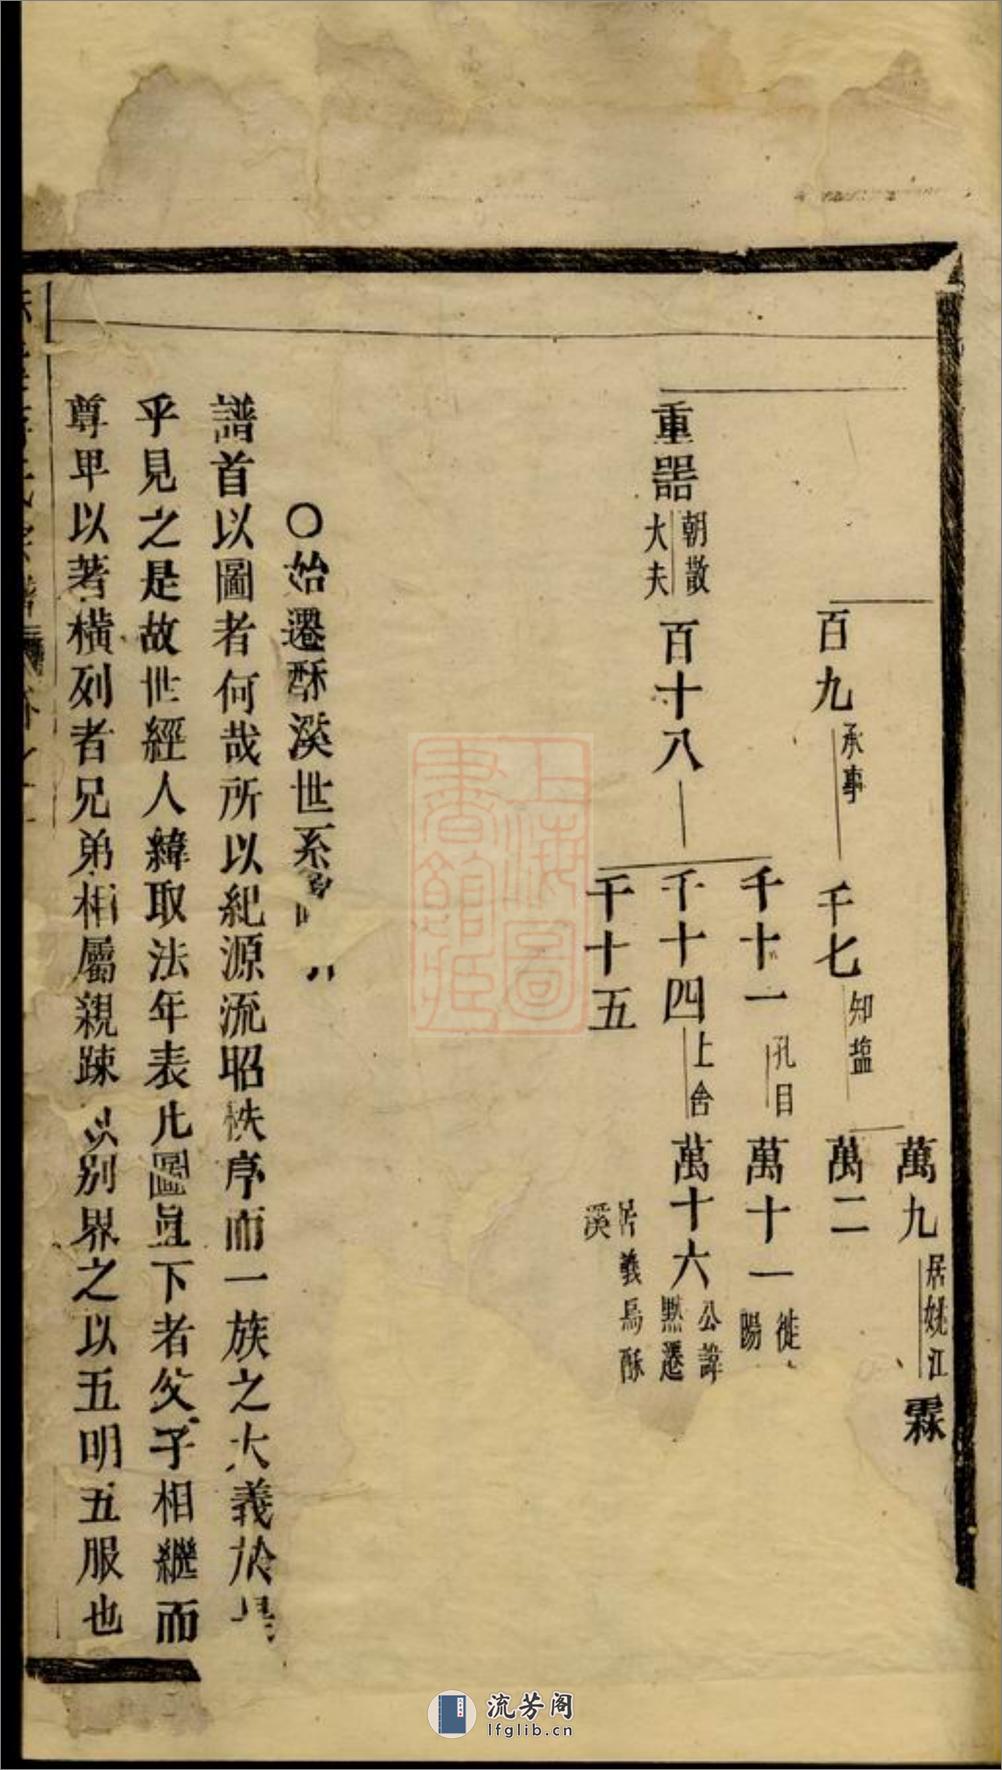 萬九 居姚江 霖
百九 承事 千七 知塩 萬二
千十一 孔目 萬十一 徙
陽
重器 朝散
大夫 百十八 千十四 上舍 萬十六 公諱
黙遷
千十五 居義烏酥
溪
○始遷酥溪世系
譜首以圖者何哉所以紀源流昭秩序而一族之大義於是
乎見之是故世經人緯取法年表凡圖直下者父子相繼而
尊卑以著橫列者兄弟相屬親踈以別界之以五明五服也
上海圖
書館藏
流芳阁
lfglib.cn